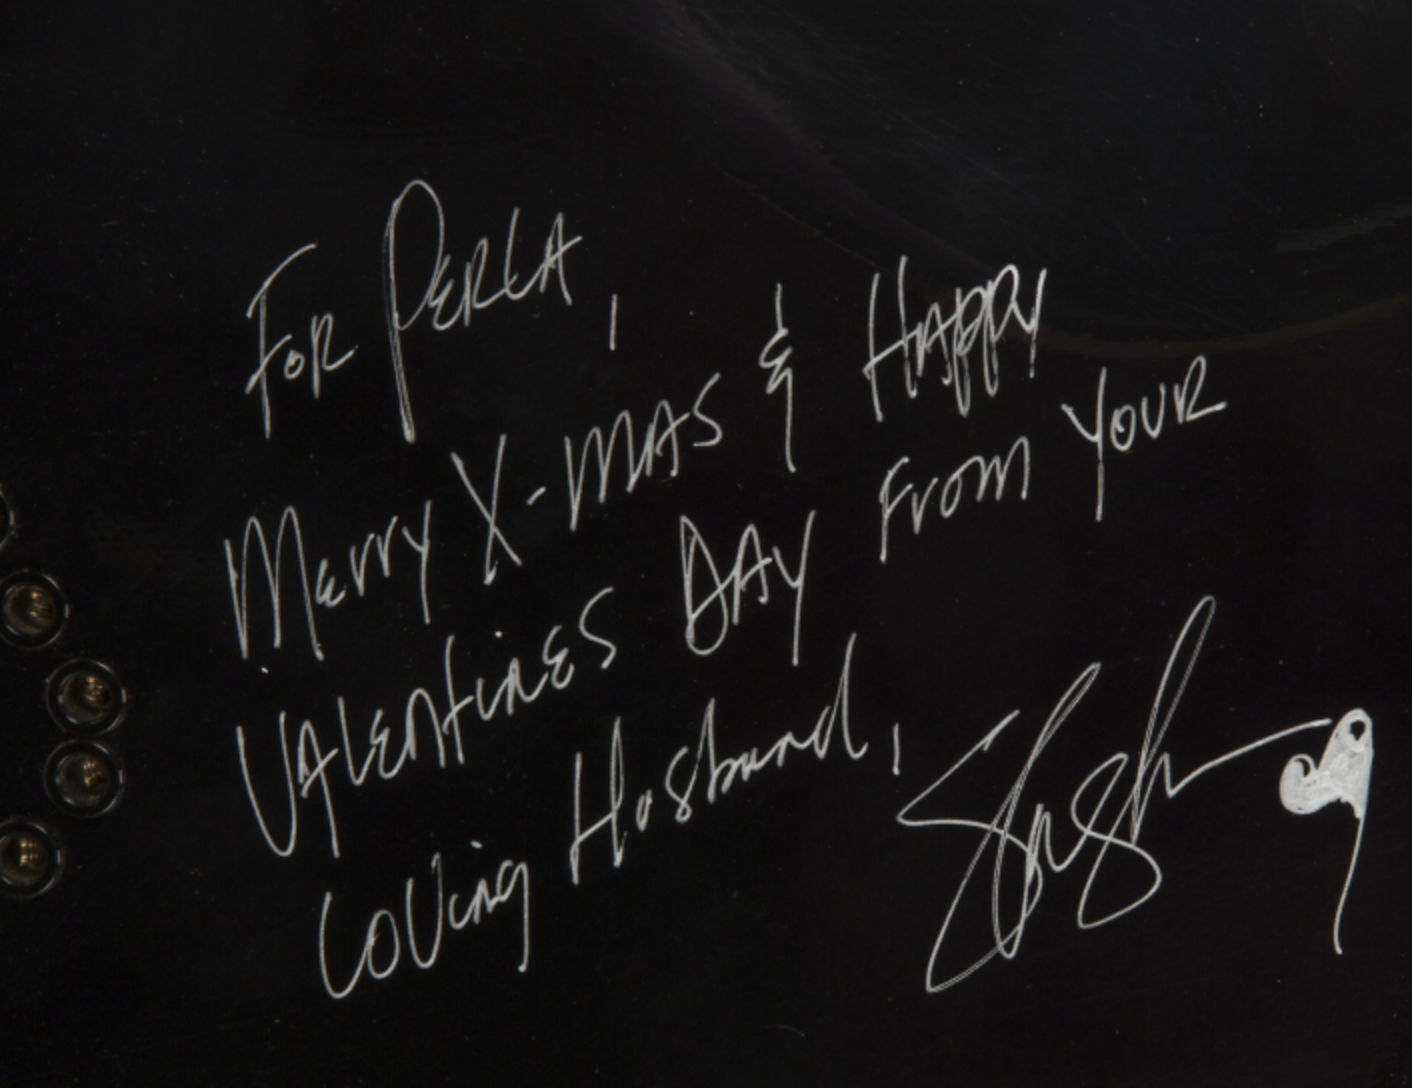 FOR PERLA,
Merry X-MAS & HAPPY
VALENTINES DAY FROM YOUR
LOVing Husband,
Slash